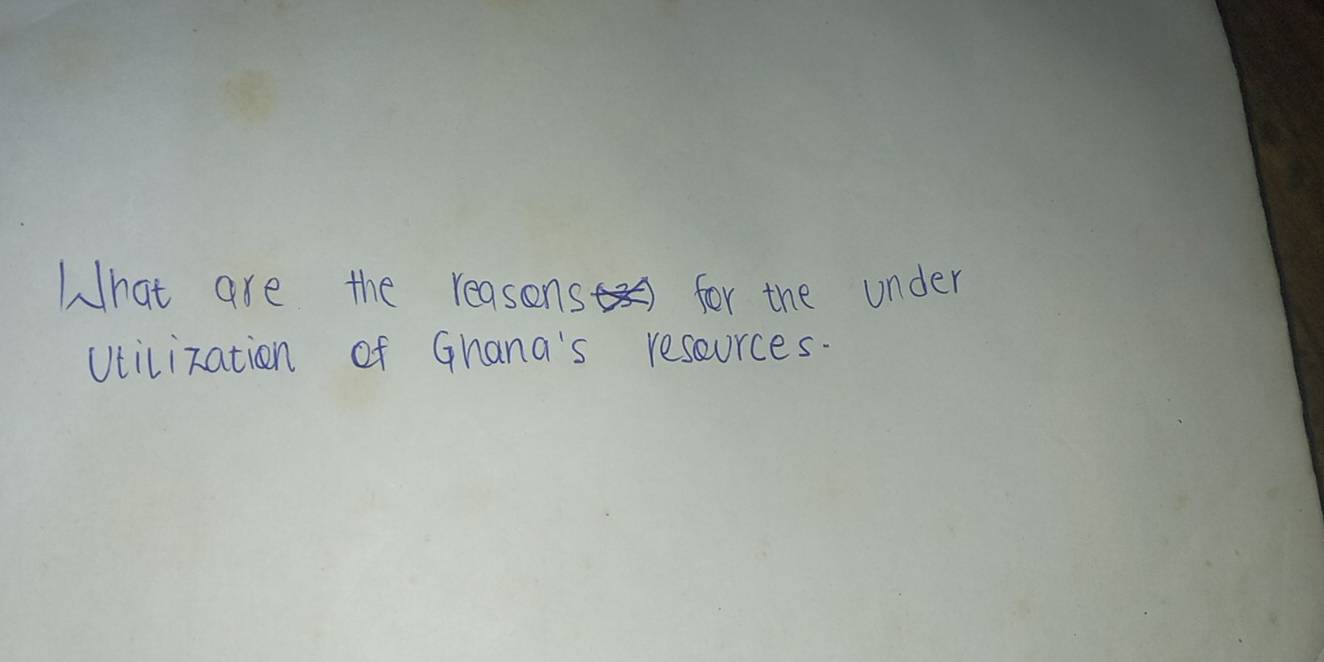 What are the reasons for the under
Utilization of Ghana's resources.